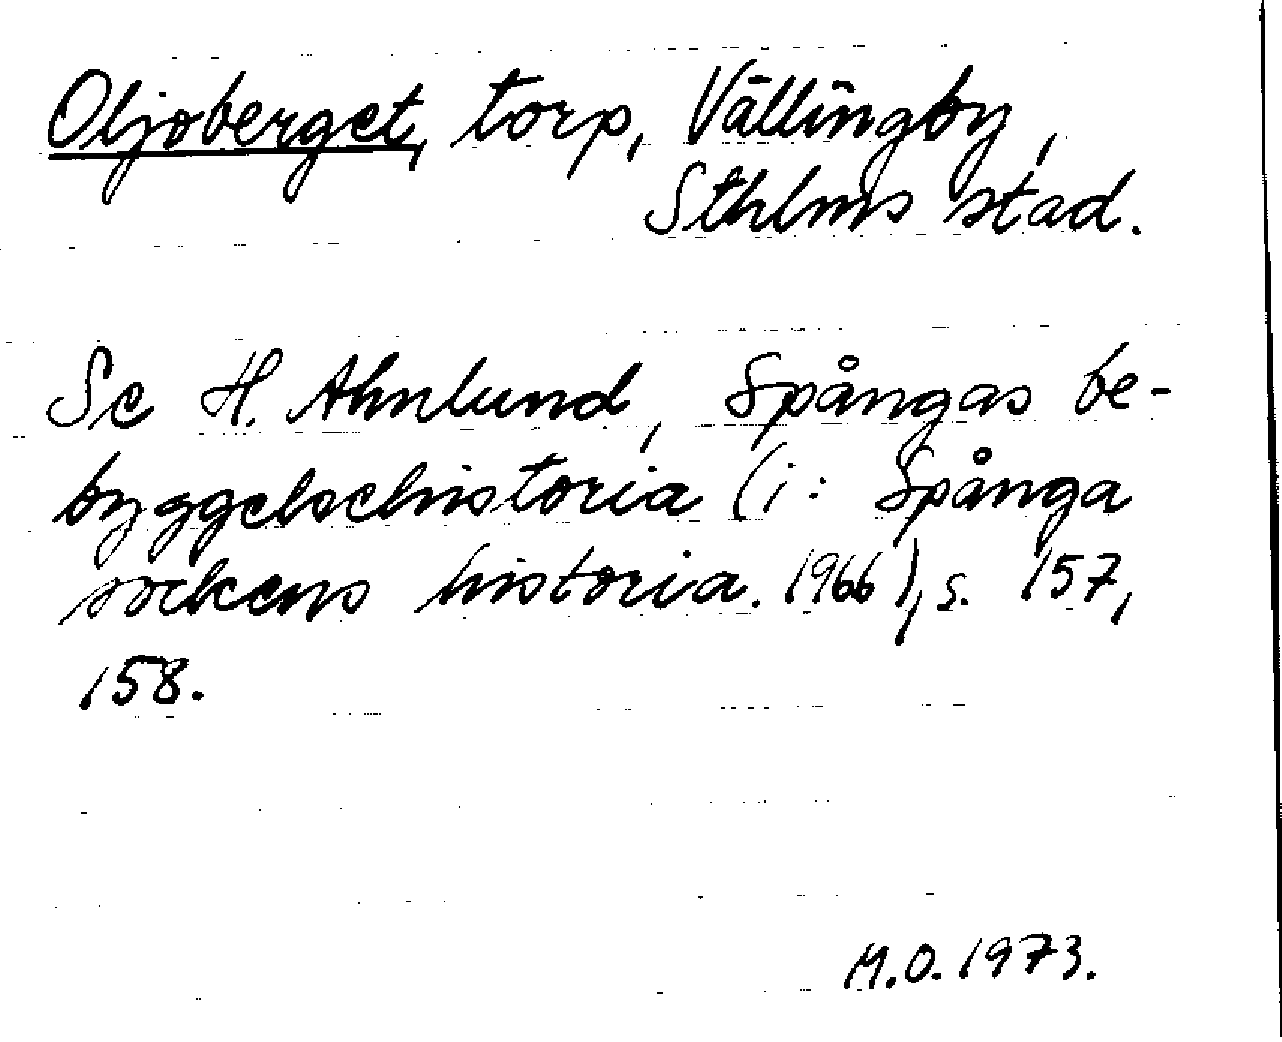 Oljoberget, torp, Vällingby,
Sthlms stad.
Se H. Ahnlund, Spångas be-
byggelsehistoria (i: Spånga
sockens historia. 1966), s. 157,
158.
M.O. 1973.